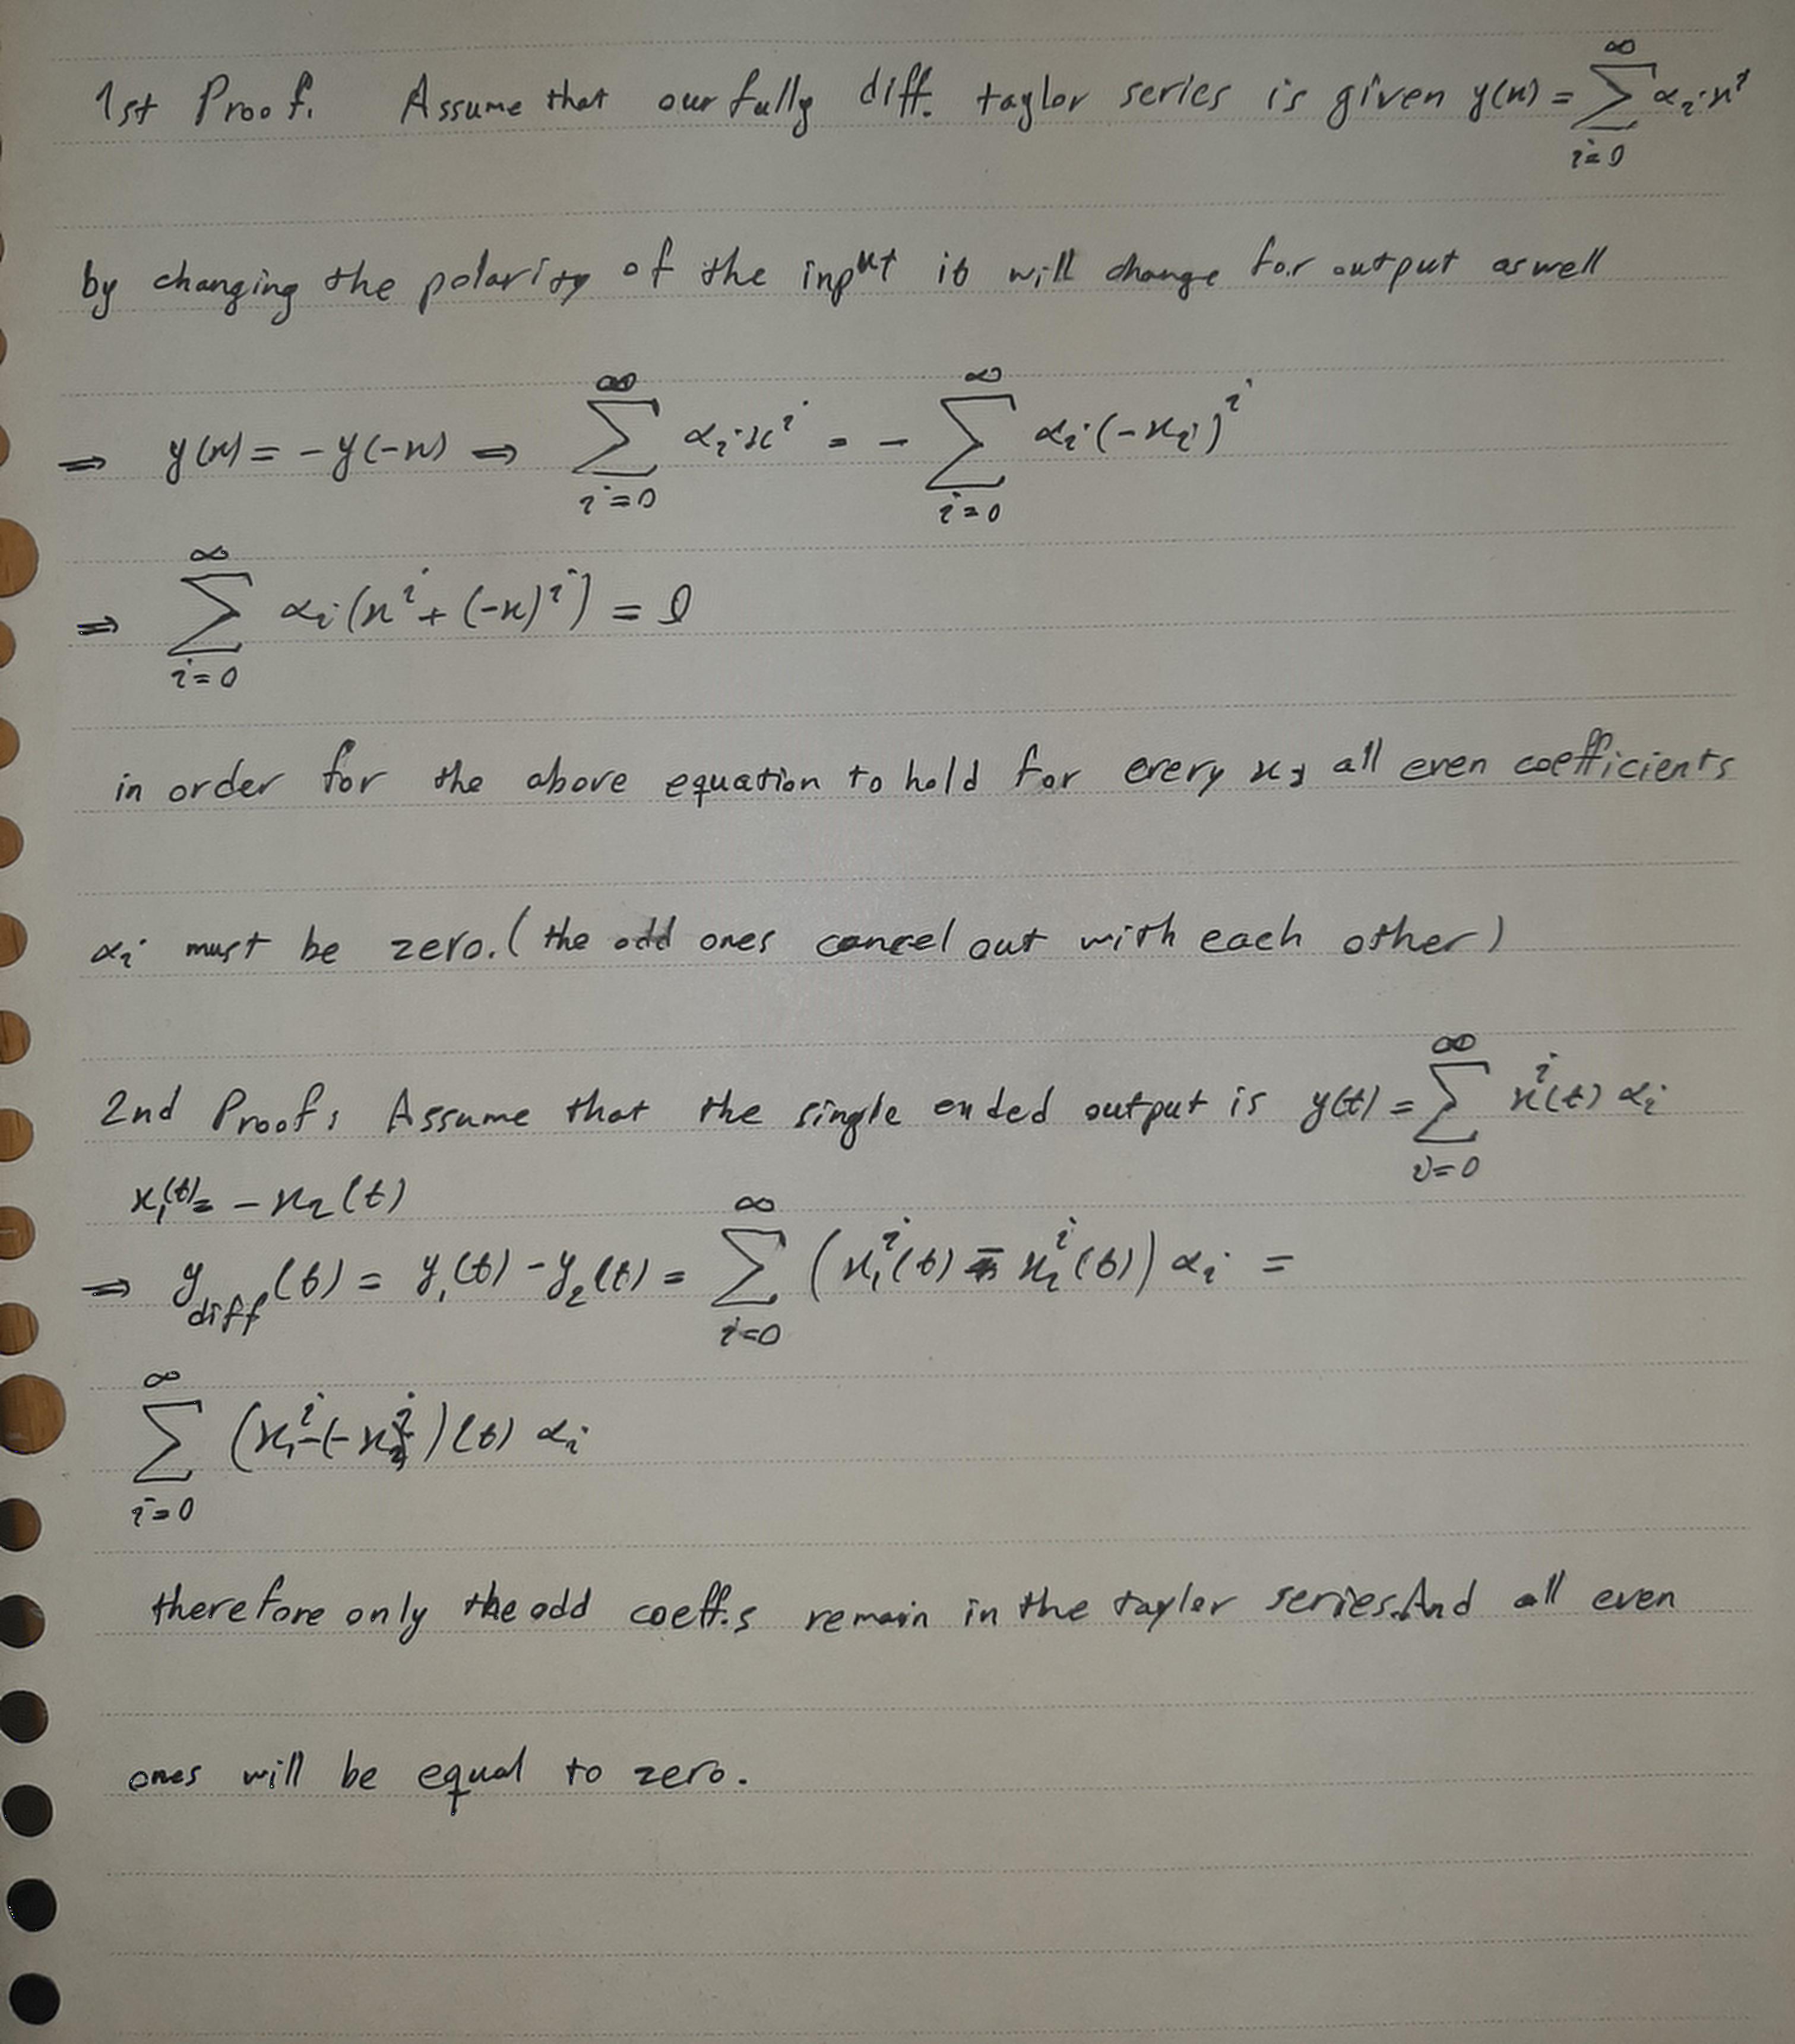 1st Proof. Assume that our fully diff. taylor series is given y(x) = ∑_{i=0}^{∞} α_i x^i
by changing the polarity of the input it will change for output as well
⇒ y(x) = -y(-x) ⇒ ∑_{i=0}^{∞} α_i x^i = - ∑_{i=0}^{∞} α_i (-x_i)^i
⇒ ∑_{i=0}^{∞} α_i (x^i + (-x)^i) = 0
in order for the above equation to hold for every x, all even coefficients
α_i must be zero. (the odd ones cancel out with each other)
2nd Proof: Assume that the single ended output is y(t) = ∑_{i=0}^{∞} x^i(t) α_i
x_1(t) = - x_2(t)
⇒ y_diff(t) = y_1(t) - y_2(t) = ∑_{i=0}^{∞} (x_1^i(t) - x_2^i(t)) α_i =
∑_{i=0}^{∞} (x_1^i - (-x_1^i)(t) α_i
therefore only the odd coeff.s remain in the tayler series. And all even
ones will be equal to zero.